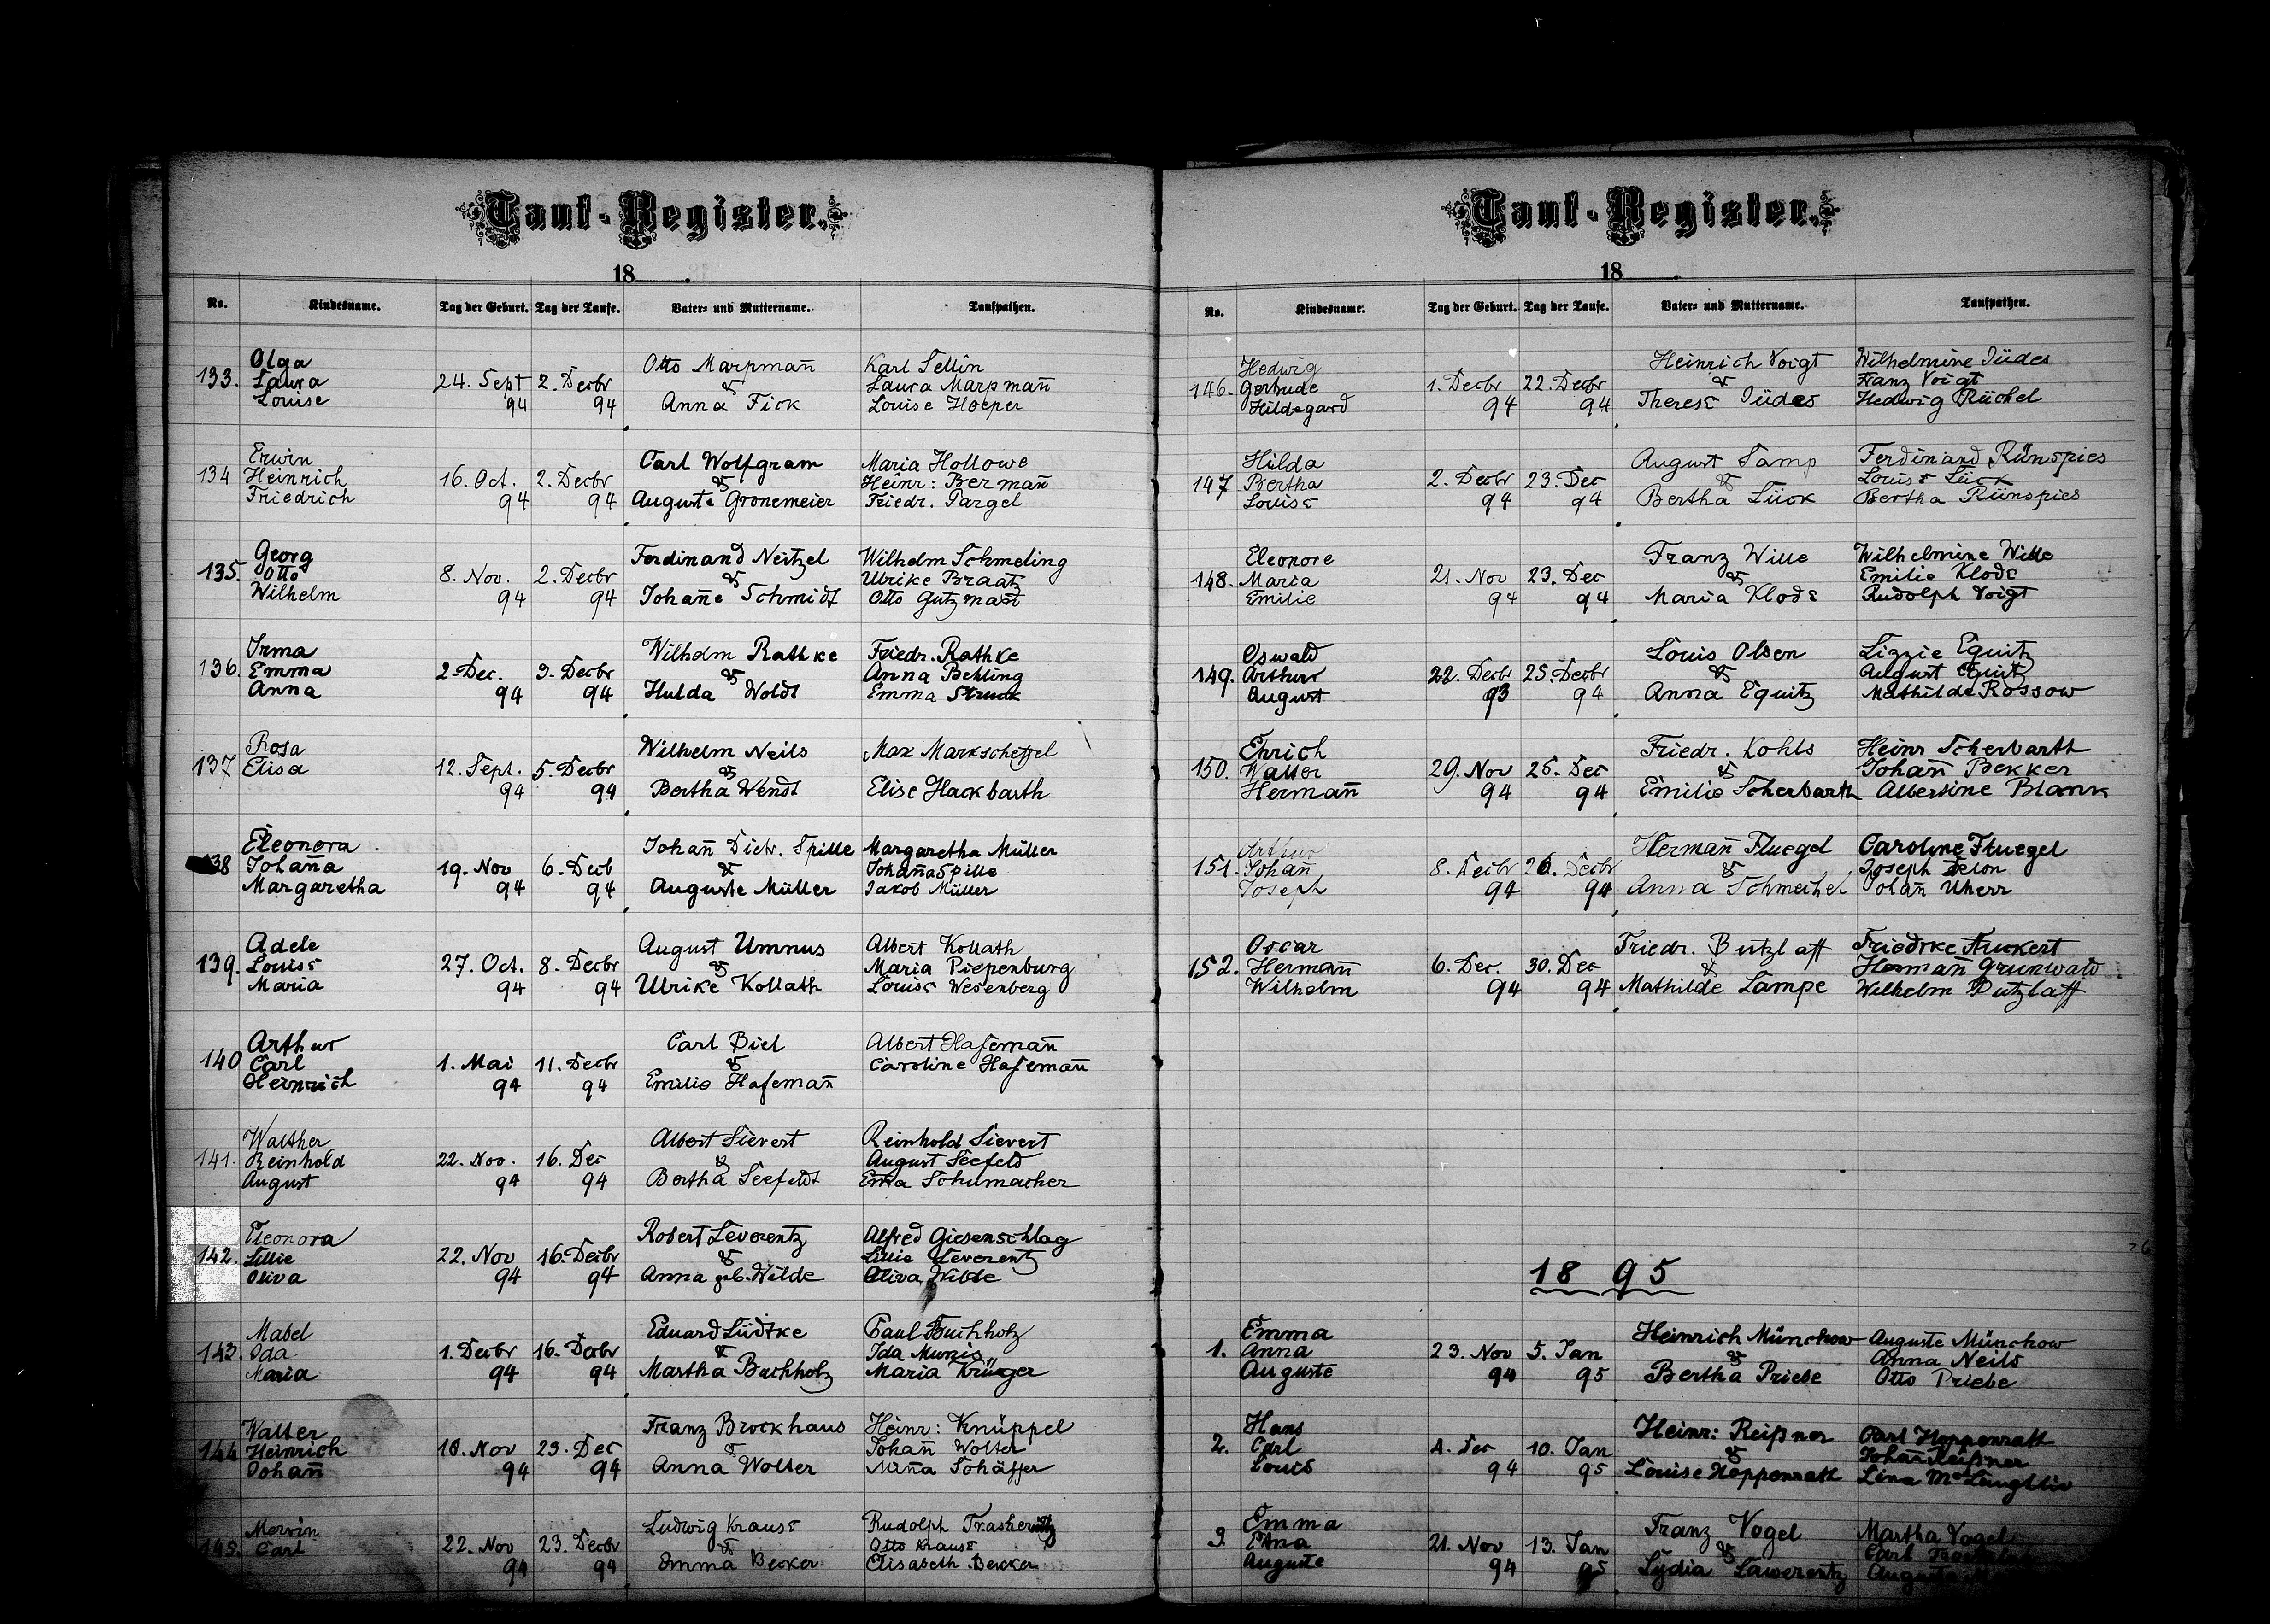 Tauf-Register.
18
No. Kindesname. Tag der Geburt. Tag der Taufe. Vater- und Muttername. Taufpathen.
Olga Otto Marpmañ Karl Sellin
133. Laura 24. Sept 2. Decbr & Laura Marpmañ
Louise 94 94 Anna Fick Louise Hoeper
Erwin Carl Wolfgram Maria Hollowe
134 Heinrich 16. Oct. 2. Decbr & Heinr: Bermañ
Friedrich 94 94 Auguste Gronemeier Friedr. Pargel
Georg Ferdinand Neitzel Wilhelm Schmeling
135. Otto 8. Nov. 2. Decbr & Ulrike Braatz
Wilhelm 94 94 Johañe Schmidt Otto
Irma Wilhelm Rathke Friedr. Rathke
136. Emma 2. Dec. 3. Decbr & Anna Behling
Anna 94 94 Hulda Woldt Emma Struck
Rosa Wilhelm Neils Max Markscheffel
137 Elisa 12. Sept. 5. Decbr &
94 94 Bertha Wendt Elise Hackbarth
Eleonora Johañ Dietr. Spille Margaretha Müller
138 Johaña 19. Nov 6. Decb & Johaña Spille
Margaretha 94 94 Auguste Müller Jakob Müller
Adele August Umnus Albert Kollath
139. Louise 27. Oct. 8. Decbr & Maria Piepenburg
Maria 94 94 Ulrike Kollath Louise Wesenberg
Arthur Carl Biel Albert Hafemañ
140 Carl 1. Mai 11. Decbr & Caroline Hafemañ
Heinrich 94 94 Emilie Hafemañ
Walther Albert Sievert Reinhold Sievert
141. Reinhold 22. Nov. 16. Dec & August Seefeld
August 94 94 Bertha Seefeldt Ema Schumacher
Eleonora Robert Leverentz Alfred Giesenschlag
142. Lillie 22. Nov 16. Decbr & Lillie Leverentz
Oliva 94 94 Anna geb. Wilde Oliva Wilde
Mabel Eduard Lüdtke Paul Buchholz
143. Ida 1. Decbr 16. Decbr & Ida Munis
Maria 94 94 Martha Buchholz Maria Krüger
Walter Franz Brockhaus Heinr: Knüppel
144 Heinrich 18. Nov 23. Dec & Johañ Wolter
Johañ 94 94 Anna Wolter Miña Schäffer
Mervin Ludwig Krause Rudolph
145. Carl 22. Nov 23. Decbr & Otto Krause
94 94 Emma Becker Elisabeth Becker
Tauf-Register.
18
No. Kindesname. Tag der Geburt. Tag der Taufe. Vater- und Muttername. Taufpathen.
Hedwig Heinrich Voigt Wilhelmine Jüdes
146. Gertrude 1. Decbr 22. Decbr & Franz Voigt
Hildegard 94 94 Therese Jüdes Hedwig Rüchel
Hilda August Tamp Ferdinand Rünspies
147 Bertha 2. Decbr 23. Dec & Louise Lück
Louise 94 94 Bertha Lück Bertha Rünspies
Eleonore Franz Wille Wilhelmine Wille
148. Maria 21. Nov 23. Dec & Emilie Klode
Emilie 94 94 Maria Klode Rudolph Voigt
Oswald Louis Olsen Lizzie Equitz
149. Arthur 22. Decbr 25. Decbr & August Equitz
August 93 94 Anna Equitz Mathilde Rossow
Ehrich Friedr. Kohls Heinr Scherbarth
150. Walter 29. Nov 25. Dec & Johañ Bekker
Hermañ 94 94 Emilie Scherbarth Albertine Blank
Arthur Hermañ Fluegel Caroline Fluegel
151. Johañ 8. Decbr 26. Decbr & Joseph Delon
Joseph 94 94 Anna Schmeichel Johañ Uherr
Oscar Friedr. Butzlaff Friedrke Auckert
152. Hermañ 6. Dec. 30. Dec & Hermañ Grunwald
Wilhelm 94 94 Mathilde Lampe Wilhelm Putzlaff
18 95
Emma Heinrich Münchow Auguste Münchow
1. Anna 23. Nov 5. Jan & Anna Neils
Auguste 94 95 Bertha Priebe Otto Priebe
Hans Heinr: Reißner Carl Hoppenrath
2. Carl 4. Dec 10. Jan & Johañ Reißner
Louis 94 95 Louise Hoppenrath Lina McLaughlin
Emma Franz Vogel Martha Vogel
3. 21. Nov 13. Jan & Carl
Auguste 94 95 Lydia Lawerentz